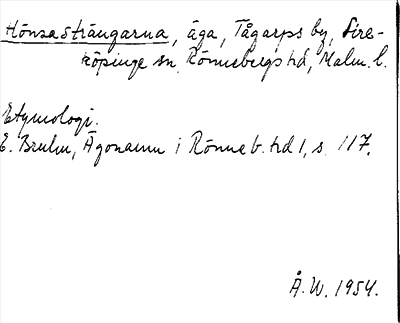 Hönsasträngarna, äga, Tågarps by, Sire-
köpinge sn, Rönnebergs hd, Malm. l.
Etymologi.
E. Bruhn, Ägonamn i Rönneb. hd 1, s. 117.
Å. W. 1954.